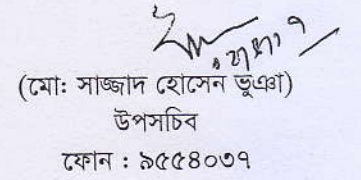 (মোঃ সাজ্জাদ হোসেন ভূঞা)
উপসচিব
ফোন : ৯৫৫৪০৩৭